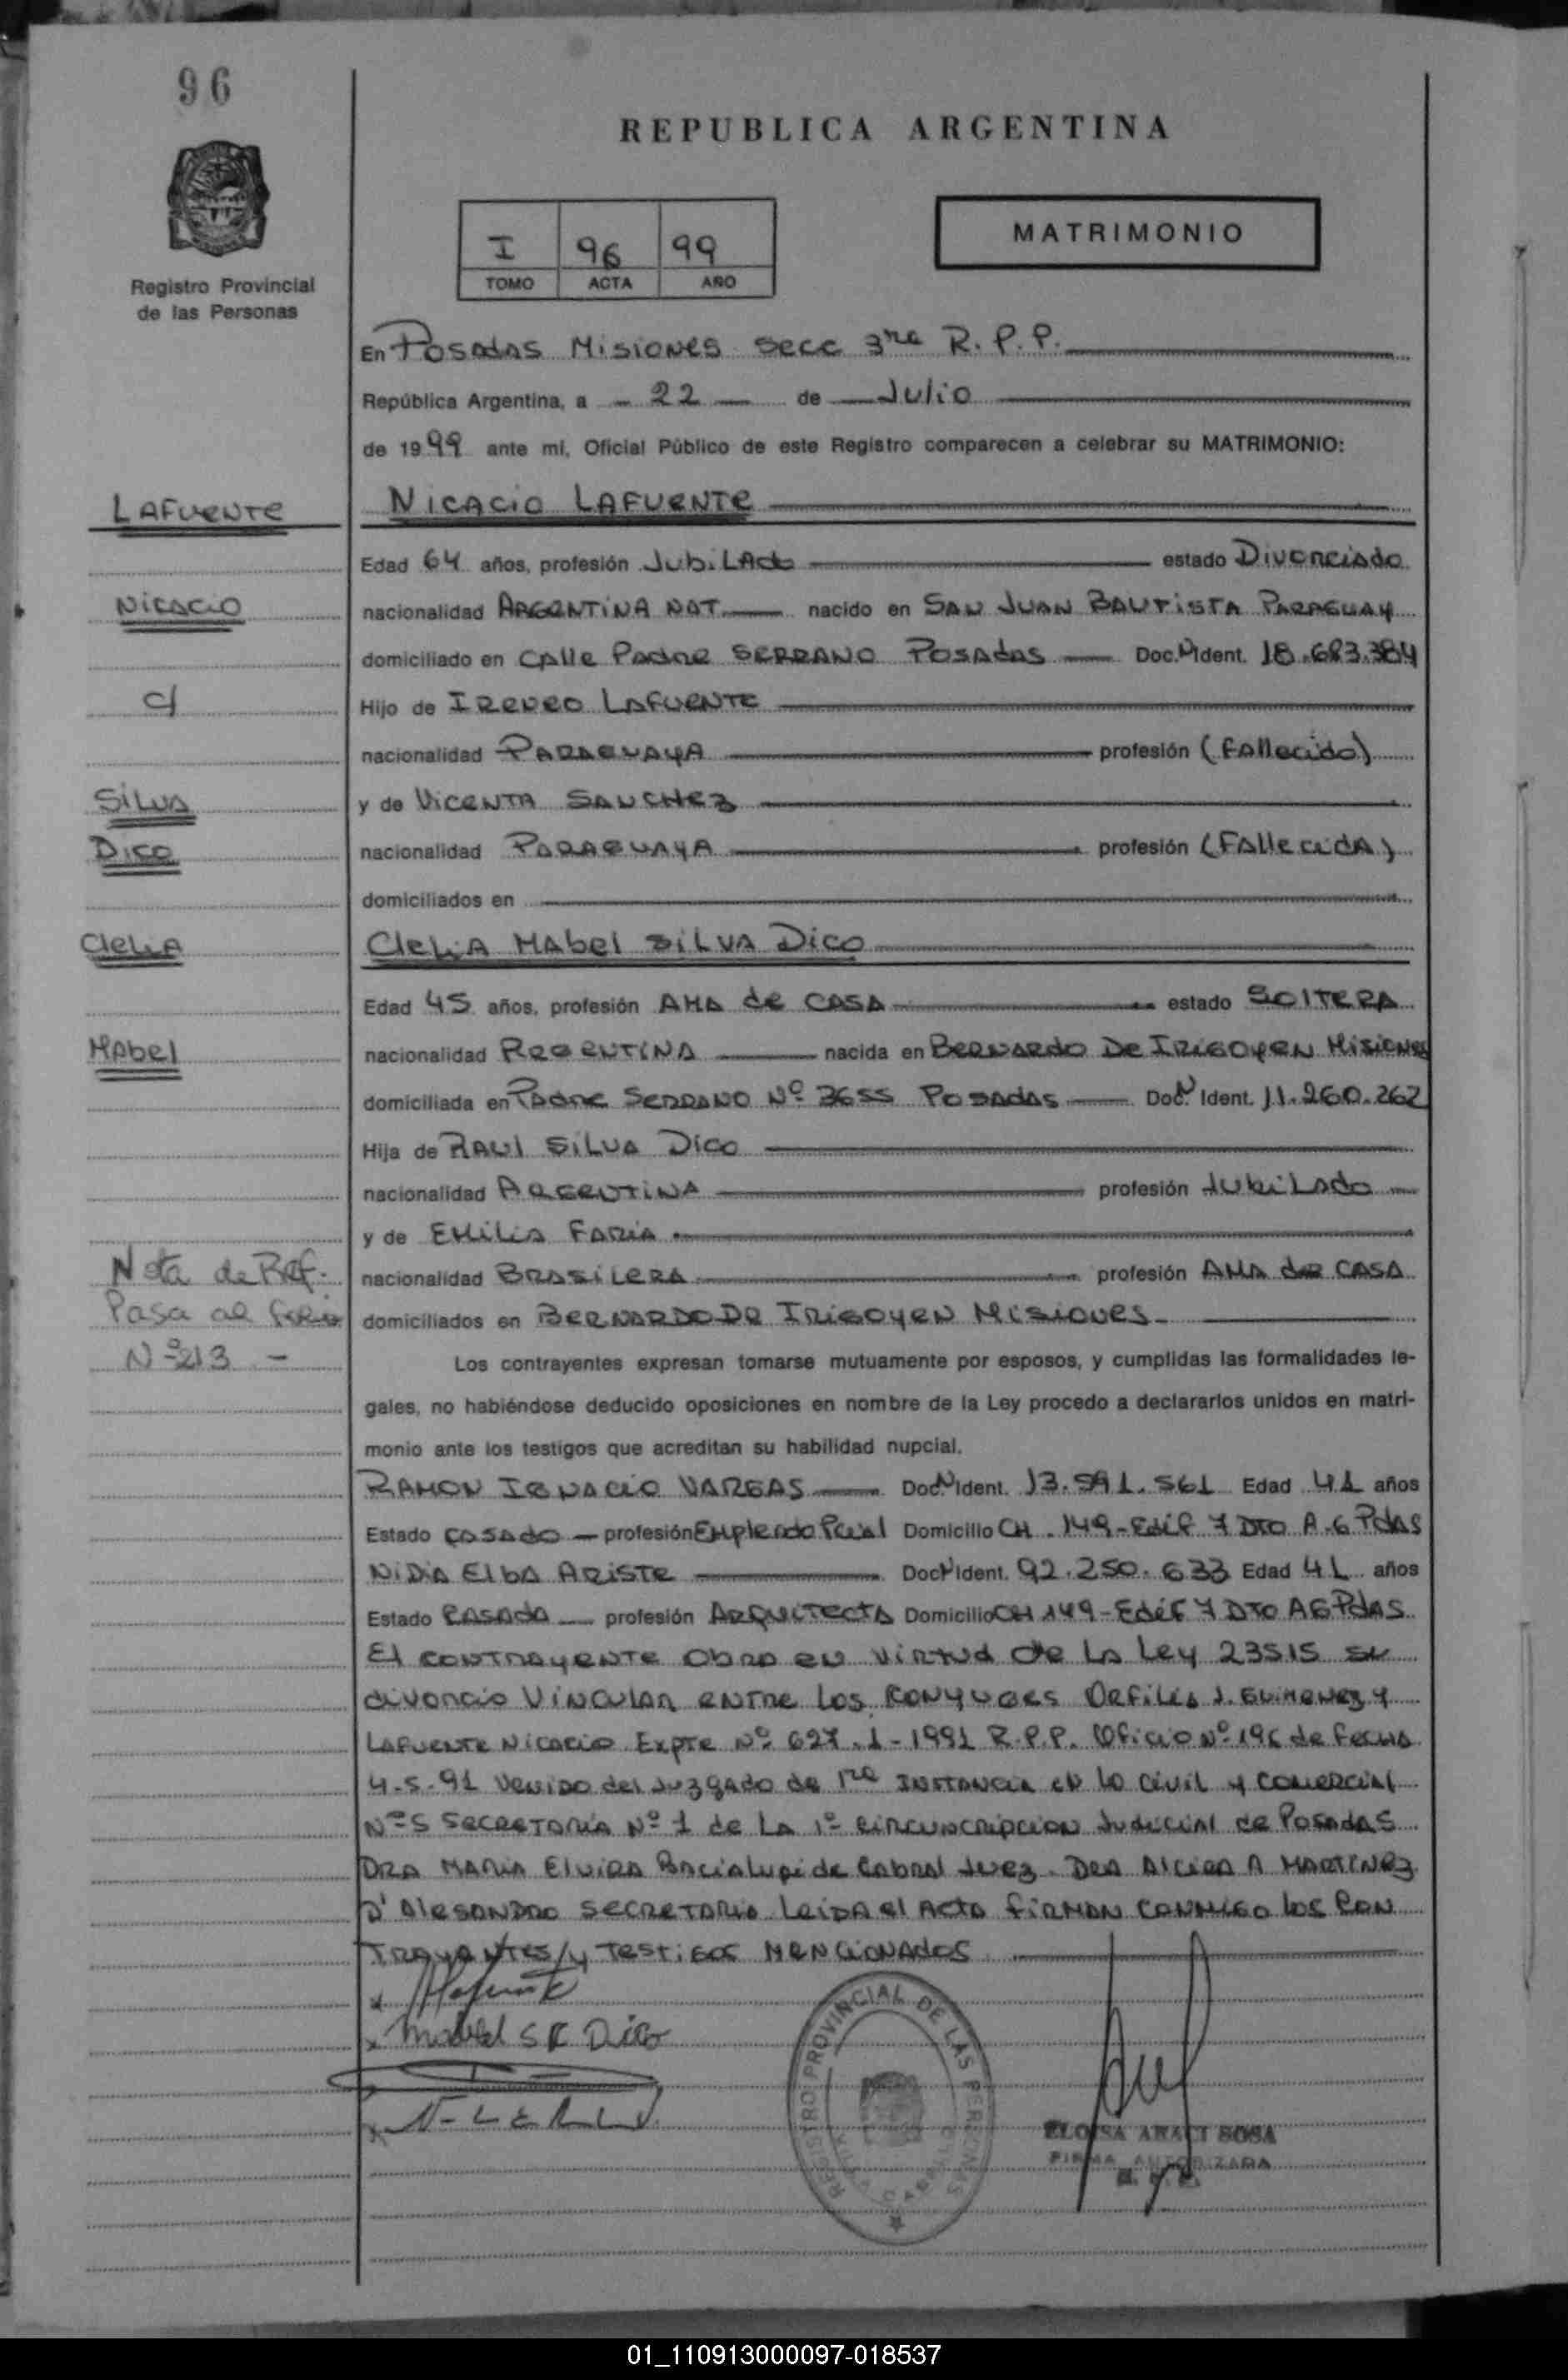 96
REPUBLICA ARGENTINA
I 96 99
TOMO ACTA AÑO
MATRIMONIO
Registro Provincial
de las Personas
En Posadas Misiones secc 3ra R.P.P.
República Argentina, a - 22 - de Julio
de 1999 ante mi, Oficial Público de este Registro comparecen a celebrar su MATRIMONIO:
LAFUENTE
NICACIO LAFUENTE
Edad 64 años, profesión Jubilado estado Divorciado
Nicacio
nacionalidad ARGENTINA NAT. nacido en SAN JUAN BAUTISTA PARAGUAY
domiciliado en Calle Padre SERRANO Posadas Doc. N Ident. 18.683.384
c/
Hijo de IRENEO LAFUENTE
nacionalidad PARAGUAYA profesión (Fallecido)
Silva
y de VICENTA SANCHEZ
Dico
nacionalidad PARAGUAYA profesión (Fallecida)
domiciliados en
Clelia
Clelia Mabel Silva Dico
Edad 45 años, profesión AMA de CASA estado SOLTERA
Mabel
nacionalidad ARGENTINA nacida en Bernardo De IRIGOYEN Misiones
domiciliada en Padre SERRANO Nº 3655 Posadas Doc. N Ident. 11.260.262
Hija de RAUL SILVA Dico
nacionalidad ARGENTINA profesión Jubilado
y de EMILIA FARIA
Nota de Ref.
nacionalidad BRASILERA profesión AMA de CASA
Pasa al folio
domiciliados en BERNARDO DE IRIGOYEN Misiones
Nº 213 -
Los contrayentes expresan tomarse mutuamente por esposos, y cumplidas las formalidades le-
gales, no habiéndose deducido oposiciones en nombre de la Ley procedo a declararlos unidos en matri-
monio ante los testigos que acreditan su habilidad nupcial.
RAMON IGNACIO VARGAS Doc. N Ident. 13.591.561 Edad 41 años
Estado CASADO profesión Empleado Domicilio CH. 149 - Edif 7 DTO A-6 Pdas
NIDIA ELBA ARISTE Doc N Ident. 92.250.633 Edad 41 años
Estado CASADA profesión ARQUITECTA Domicilio CH 149 - Edif 7 DTO A6 Pdas
El CONTRAYENTE Obra en virtud de La Ley 23515 su
divorcio VINCULAR ENTRE los CONYUGES Defilia J. GIMENEZ y
LAFUENTE Nicacio Expte Nº 627.1-1991 R.P.P. Oficio Nº 196 de fecha
4-5-91 venido del Juzgado de 1ra INSTANCIA en lo civil y COMERCIAL
Nº 5 SECRETARIA Nº 1 de LA 1º CIRCUNSCRIPCION Judicial de Posadas
DRA MARIA ELVIRA Bacialupi de Cabral Juez. DRA Alcira A MARTINEZ
D'ALESANDRO SECRETARIA Leida el Acta firman CONMIGO los CON
TRAYENTES/y Testigos MENCIONADOS
x Lafuente
x Mabel S Dico
REGISTRO PROVINCIAL DE LAS PERSONAS
ELOISA ARACI SOSA
FIRMA AUTORIZADA
01_110913000097-018537